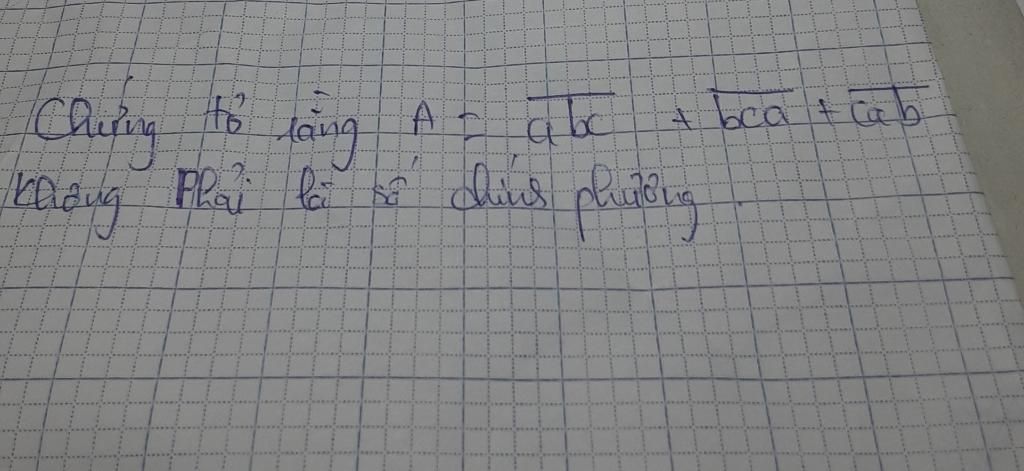 Chứng tỏ rằng A = \overline{abc} + \overline{bca} + \overline{cab}
không phải là số chính phương.